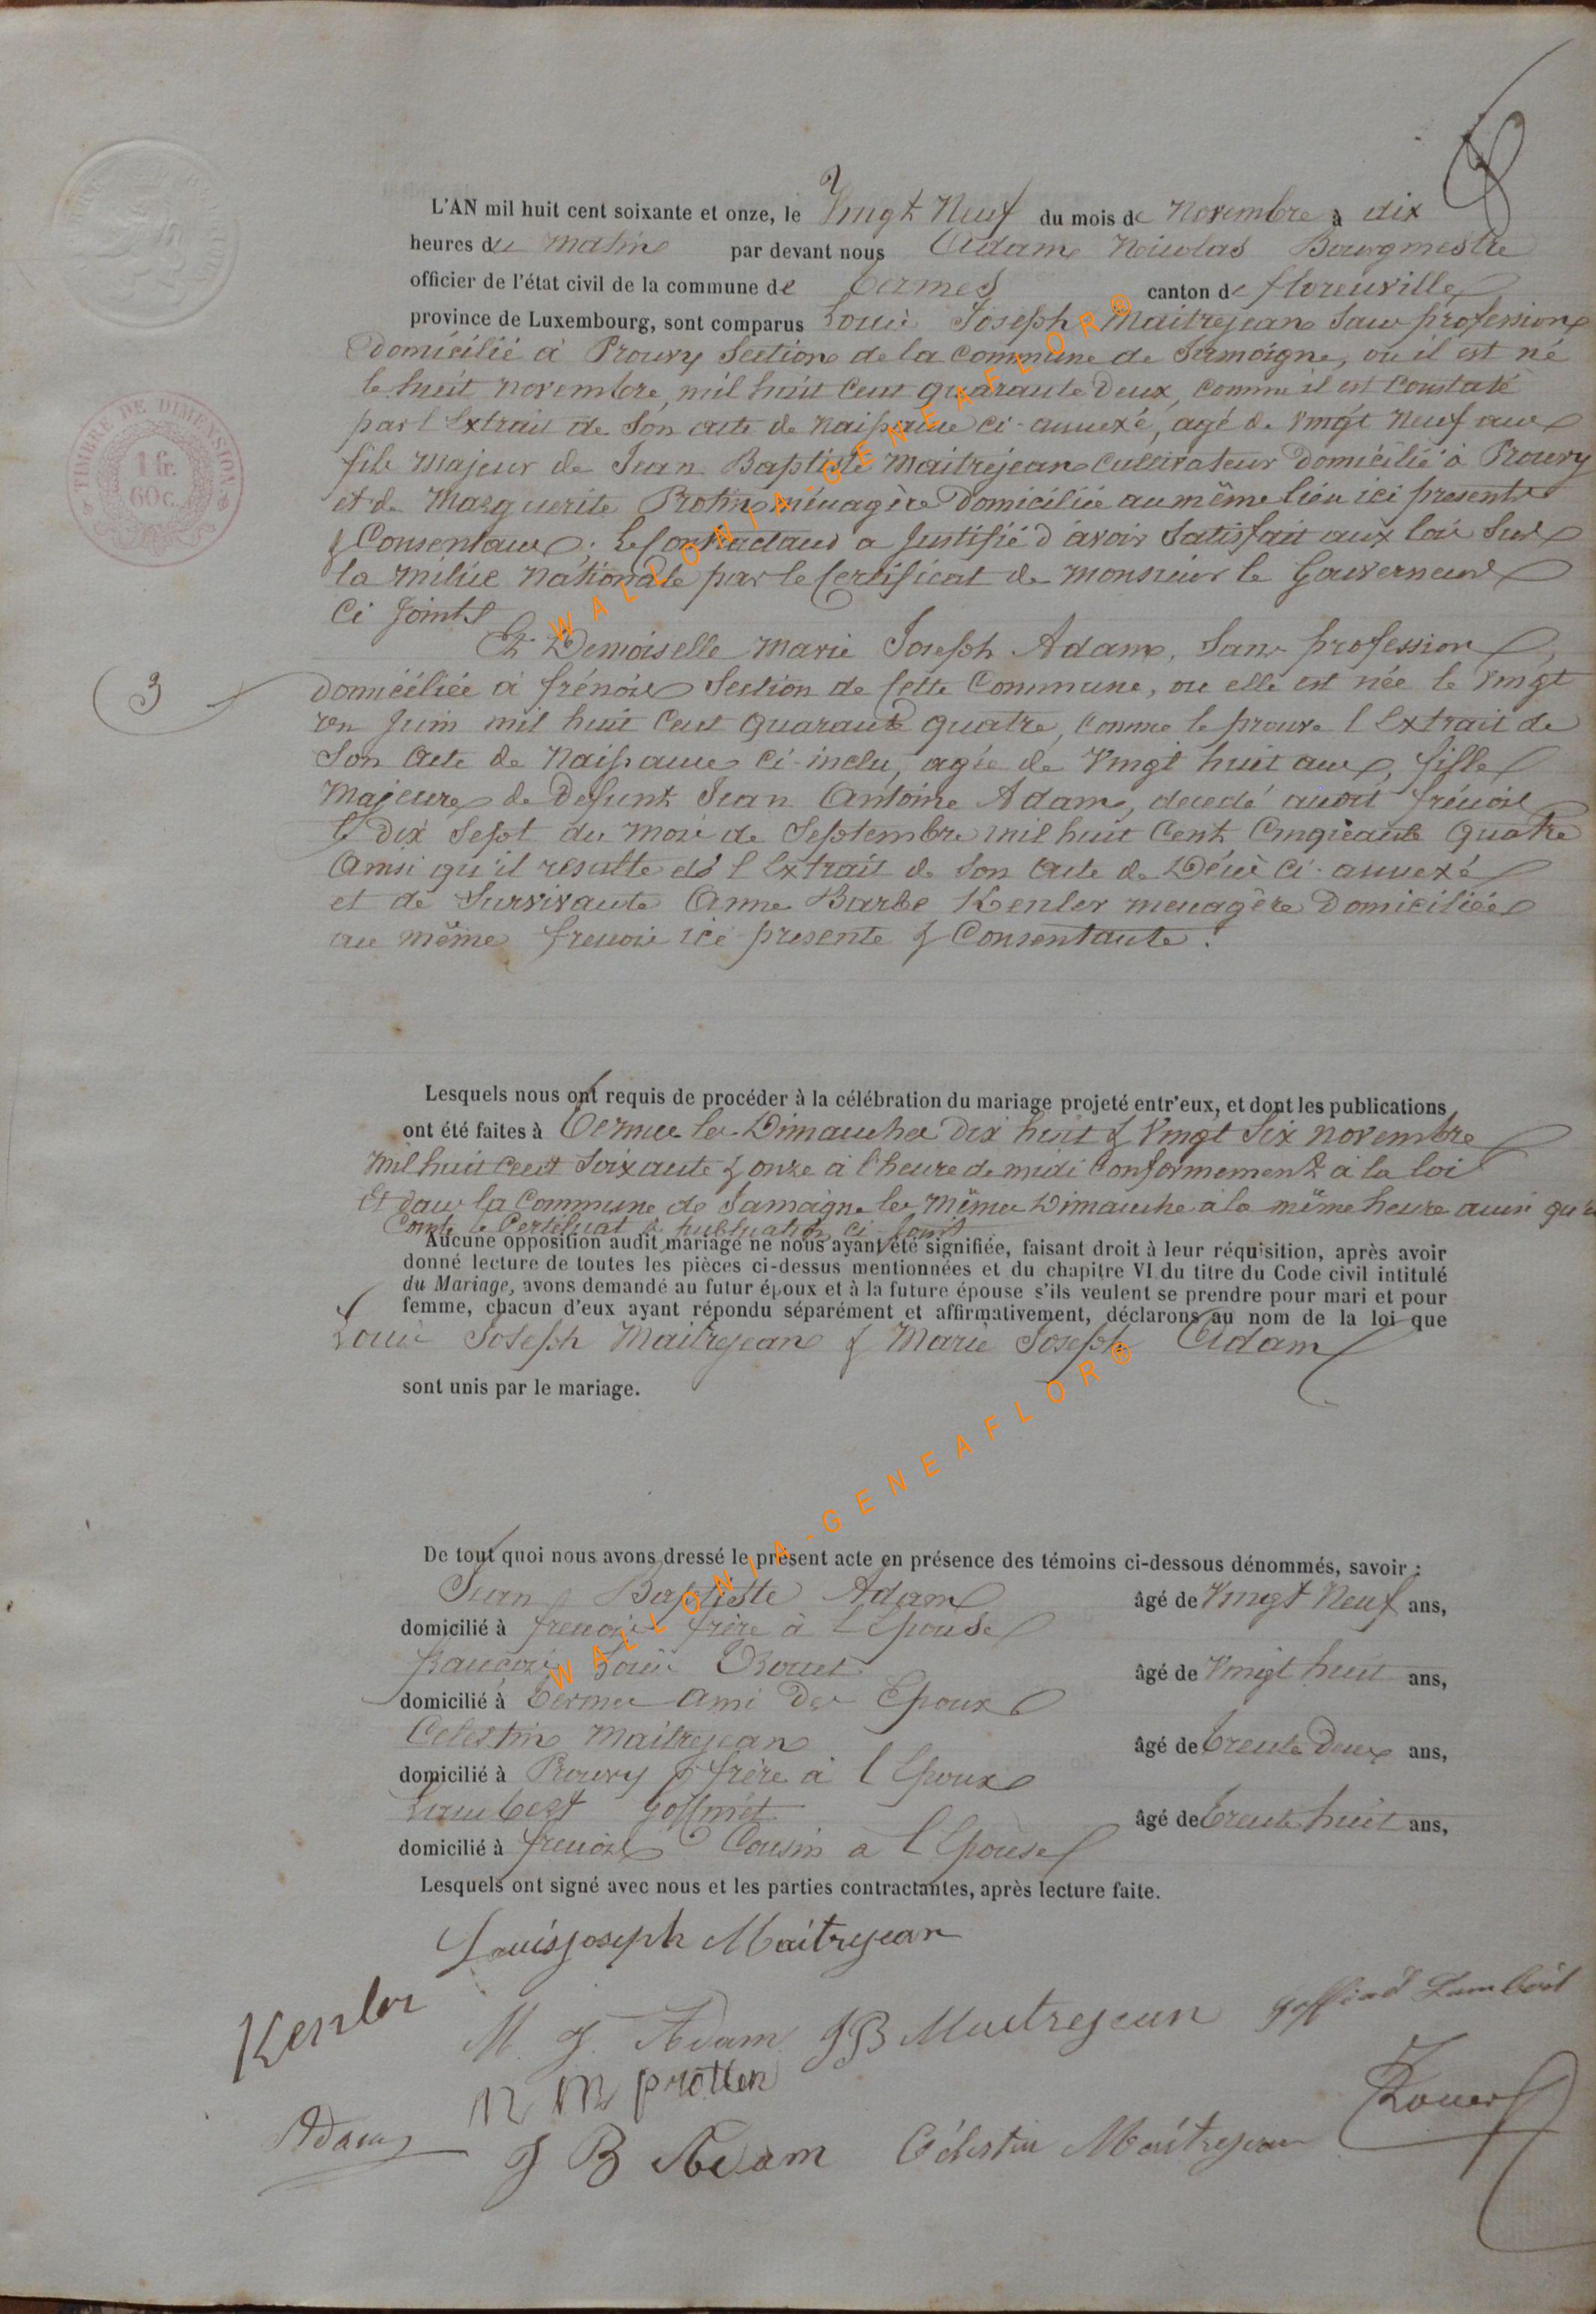 L'AN mil huit cent soixante et onze, le Vingt Neuf du mois de Novembre à dix
heures du matin par devant nous Adam Nicolas Bourgmestre
officier de l'état civil de la commune de Termes canton de florenville
province de Luxembourg, sont comparus Louis Joseph Maitrejean Sans profession
Domicilié à Prouvy Section de la commune de Jamoigne, ou il est né
le huit novembre, mil huit Cent quarante Deux, comme il est Constaté
par l'Extrait de Son acte de Naissance ci-annexé, agé de Vingt Neuf ans
fils Majeur de Jean Baptiste Maitrejean Cultivateur Domicilié à Prouvy
et de Marguerite Protin ménagère Domiciliée au même lieu ici presents
& Consentans ; Le Contractant a Justifié d'avoir Satisfait aux lois Sur
la milice Nationale par le Certificat de Monsieur le Gouverneur
Ci Joint
Et Demoiselle Marie Joseph Adam, Sans profession
3
domiciliée à frénois Section de Cette Commune, ou elle est née le Vingt
un Juin mil huit Cent quarante quatre, comme le prouve l'Extrait de
Son acte de Naissance Ci-inclu, agée de Vingt huit ans, fille
Majeure de Defunt Jean Antoine Adam, decedé audit frénois
le Dix Sept du Mois de Septembre mil huit Cent Cinquante quatre
Ainsi qu'il resulte de l'Extrait de Son acte de Décès Ci-annexé
et de Survivante Anne Barbe Kenler menagère Domiciliée
au même frenois ici presente & Consentante.
Lesquels nous ont requis de procéder à la célébration du mariage projeté entr'eux, et dont les publications
ont été faites à Termes les Dimanches Dix huit & Vingt Six Novembre
Mil huit Cent Soixante & onze à l'heure de midi Conformement à la loi
Et dans la Commune de Jamoigne les Mêmes Dimanche à la même heure ainsi qu'il
Conste le Certificat de publication ci Joint
Aucune opposition audit mariage ne nous ayant été signifiée, faisant droit à leur réquisition, après avoir
donné lecture de toutes les pièces ci-dessus mentionnées et du chapitre VI du titre du Code civil intitulé
du Mariage, avons demandé au futur époux et à la future épouse s'ils veulent se prendre pour mari et pour
femme, chacun d'eux ayant répondu séparément et affirmativement, déclarons au nom de la loi que
Louis Joseph Maitrejean & Marie Joseph Adam
sont unis par le mariage.
De tout quoi nous avons dressé le présent acte en présence des témoins ci-dessous dénommés, savoir :
Jean Baptiste Adam âgé de Vingt Neuf ans,
domicilié à frenois frère à l'Epouse
françois Louis âgé de Vingt huit ans,
domicilié à Termes Ami des Epoux
Celestin Maitrejean âgé de Trente Deux ans,
domicilié à Prouvy frère à l'Epoux
Lambert Goffinet âgé de Trente huit ans,
domicilié à frenois Cousin à l'Epouse
Lesquels ont signé avec nous et les parties contractantes, après lecture faite.
Louis joseph Maitrejean
Kenler
M. J. Adam JB Maitrejean goffinet Lambert
M protten
Adam
J B Adam Célestin Maitrejean
TIMBRE DE DIMENSION
1 fr.
60 c.
WALLONIA-GENEAFLOR®
WALLONIA-GENEAFLOR®